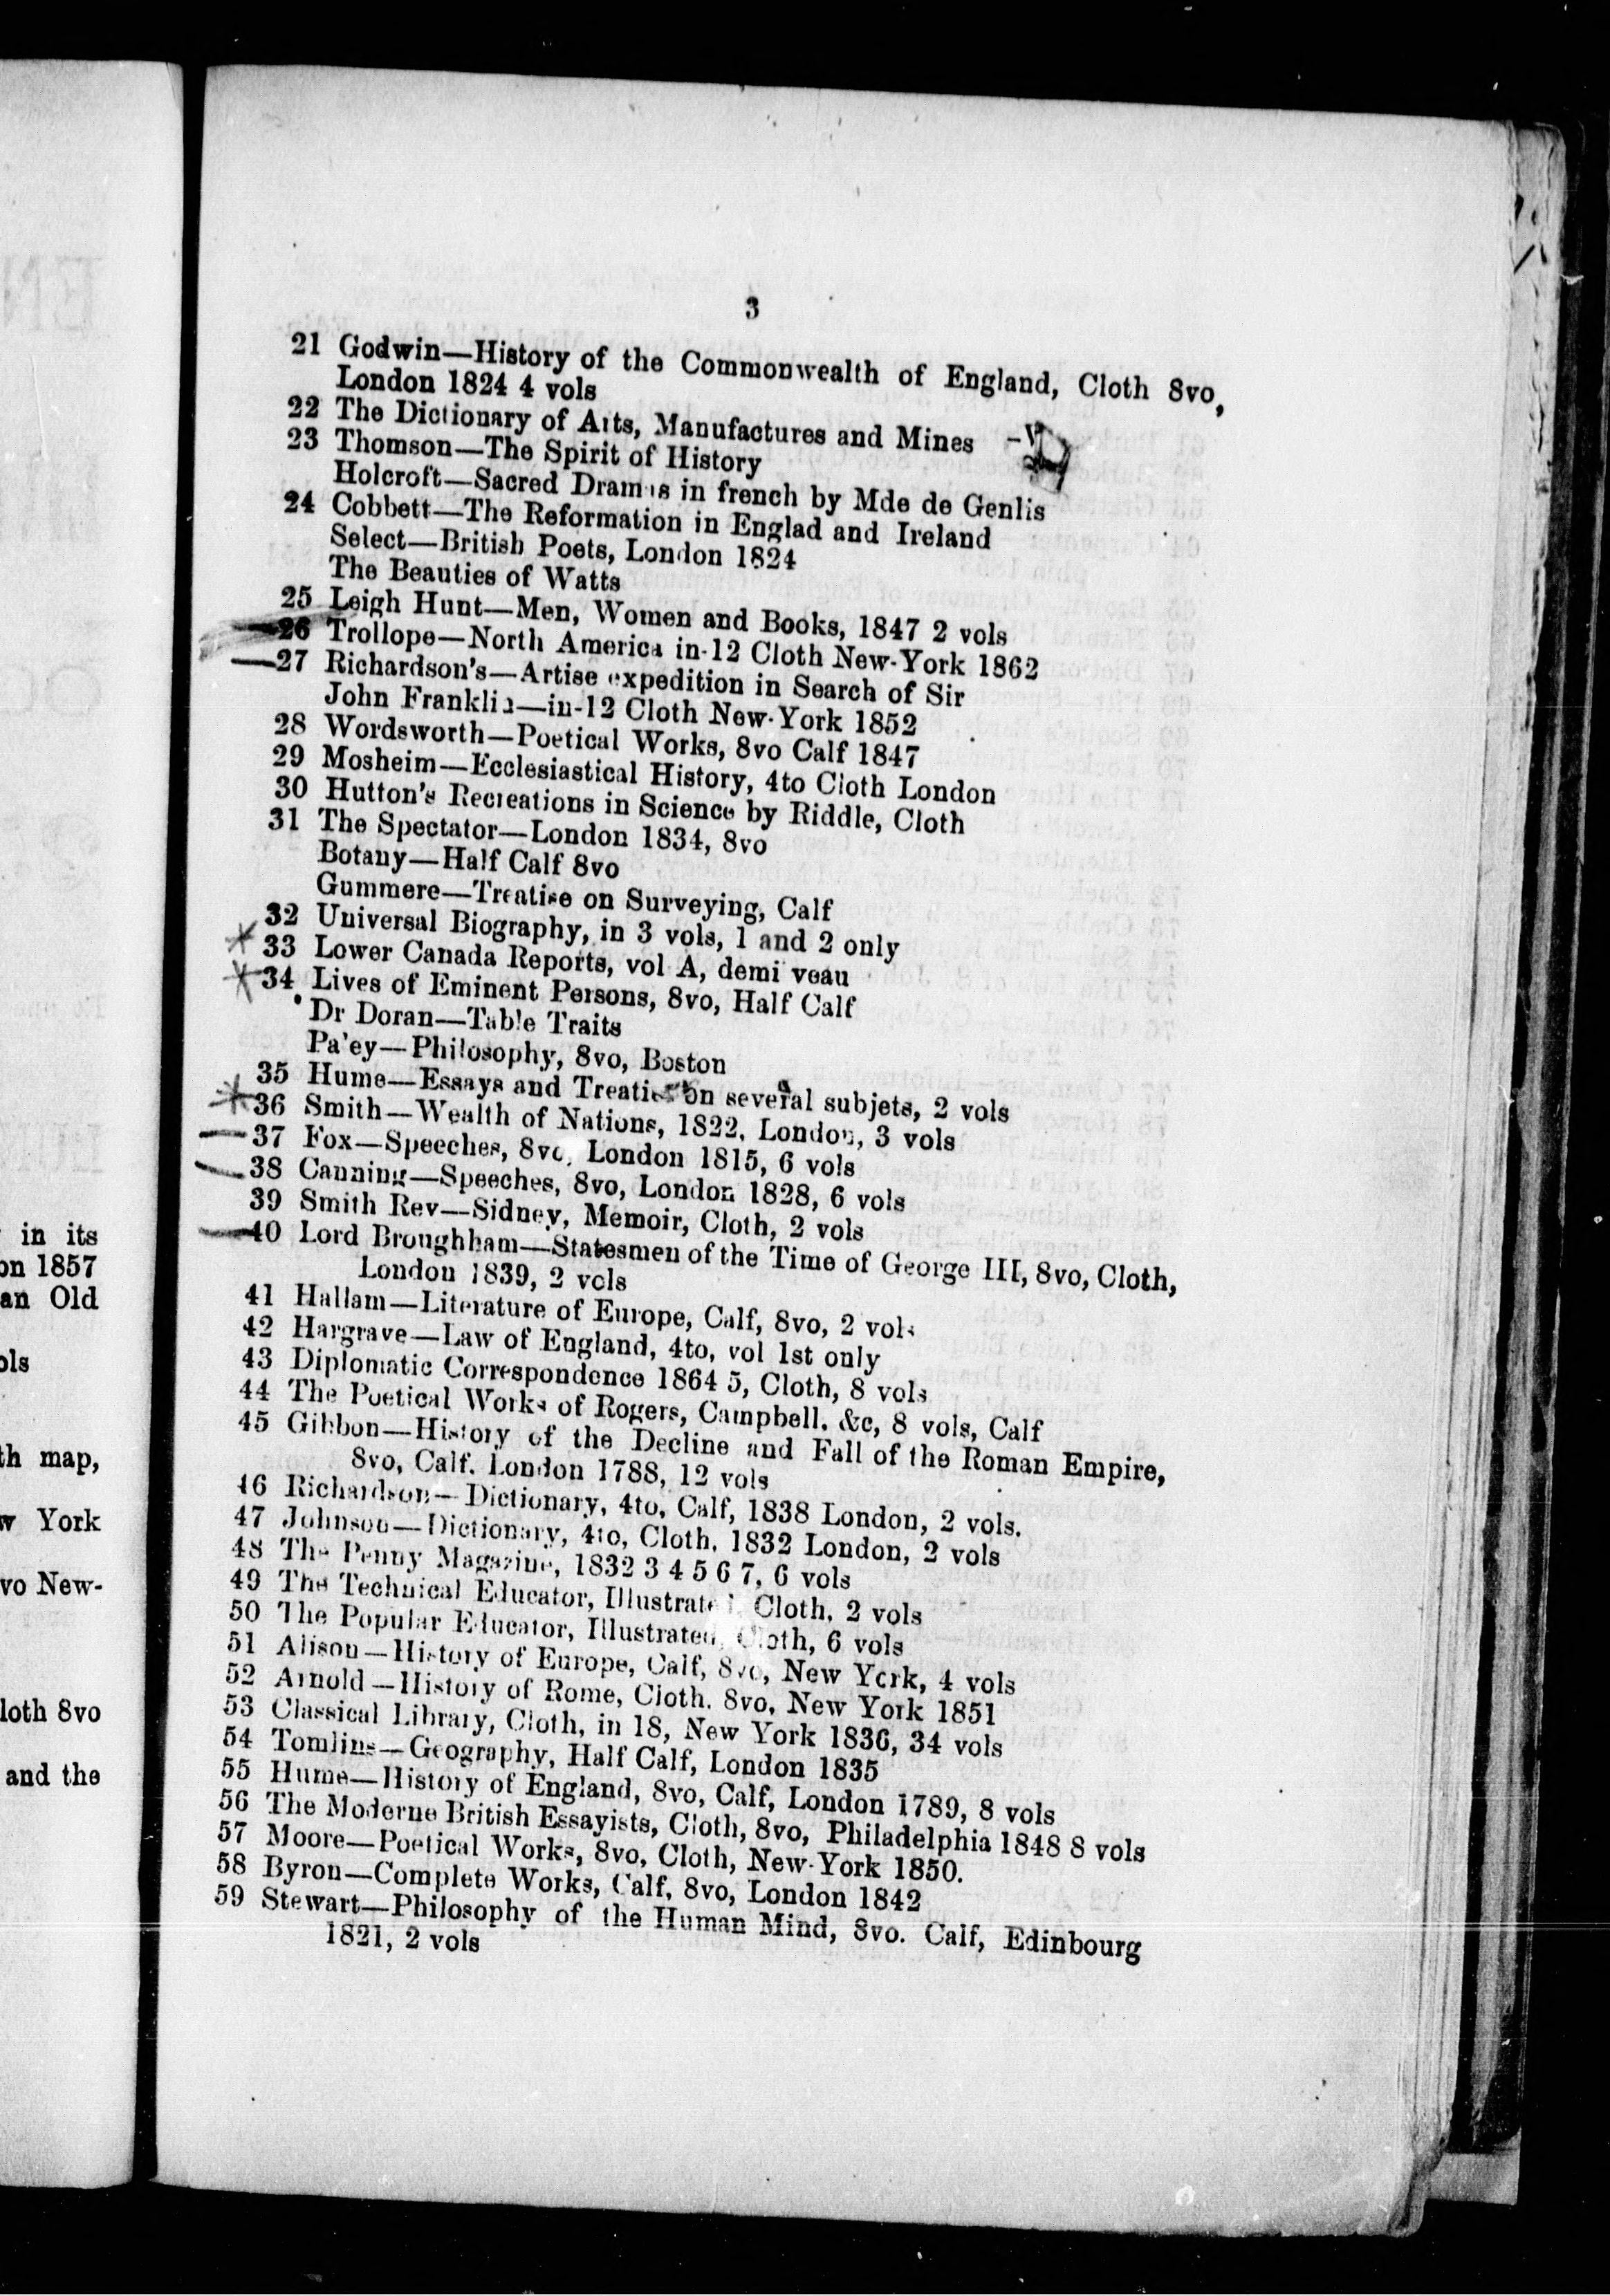 in its
on 1857
an Old
ols
th map,
w York
vo New-
loth 8vo
and the
3
21 Godwin—History of the Commonwealth of England, Cloth 8vo,
London 1824 4 vols
22 The Dictionary of Arts, Manufactures and Mines
23 Thomson—The Spirit of History
Holcroft—Sacred Dramas in french by Mde de Genlis
24 Cobbett—The Reformation in Englad and Ireland
Select—British Poets, London 1824
The Beauties of Watts
25 Leigh Hunt—Men, Women and Books, 1847 2 vols
26 Trollope—North America in-12 Cloth New-York 1862
27 Richardson's—Artise expedition in Search of Sir
John Franklin—in-12 Cloth New-York 1852
28 Wordsworth—Poetical Works, 8vo Calf 1847
29 Mosheim—Ecclesiastical History, 4to Cloth London
30 Hutton's Recreations in Science by Riddle, Cloth
31 The Spectator—London 1834, 8vo
Botany—Half Calf 8vo
Gummere—Treatise on Surveying, Calf
32 Universal Biography, in 3 vols, 1 and 2 only
33 Lower Canada Reports, vol A, demi veau
34 Lives of Eminent Persons, 8vo, Half Calf
Dr Doran—Table Traits
Paley—Philosophy, 8vo, Boston
35 Hume—Essays and Treaties on several subjets, 2 vols
36 Smith—Wealth of Nations, 1822, London, 3 vols
37 Fox—Speeches, 8vo, London 1815, 6 vols
38 Canning—Speeches, 8vo, London 1828, 6 vols
39 Smith Rev—Sidney, Memoir, Cloth, 2 vols
40 Lord Broughham—Statesmen of the Time of George III, 8vo, Cloth,
London 1839, 2 vols
41 Hallam—Literature of Europe, Calf, 8vo, 2 vols
42 Hargrave—Law of England, 4to, vol 1st only
43 Diplomatic Correspondence 1864 5, Cloth, 8 vols
44 The Poetical Works of Rogers, Campbell. &c, 8 vols, Calf
45 Gibbon—History of the Decline and Fall of the Roman Empire,
8vo, Calf. London 1788, 12 vols
46 Richardson—Dictionary, 4to, Calf, 1838 London, 2 vols.
47 Johnson—Dictionary, 4to, Cloth, 1832 London, 2 vols
48 The Penny Magazine, 1832 3 4 5 6 7, 6 vols
49 The Technical Educator, Illustrated, Cloth, 2 vols
50 The Popular Educator, Illustrated, Cloth, 6 vols
51 Alison—History of Europe, Calf, 8vo, New York, 4 vols
52 Arnold—History of Rome, Cloth. 8vo, New York 1851
53 Classical Library, Cloth, in 18, New York 1836, 34 vols
54 Tomlins—Geography, Half Calf, London 1835
55 Hume—History of England, 8vo, Calf, London 1789, 8 vols
56 The Moderne British Essayists, Cloth, 8vo, Philadelphia 1848 8 vols
57 Moore—Poetical Works, 8vo, Cloth, New-York 1850.
58 Byron—Complete Works, Calf, 8vo, London 1842
59 Stewart—Philosophy of the Human Mind, 8vo. Calf, Edinbourg
1821, 2 vols